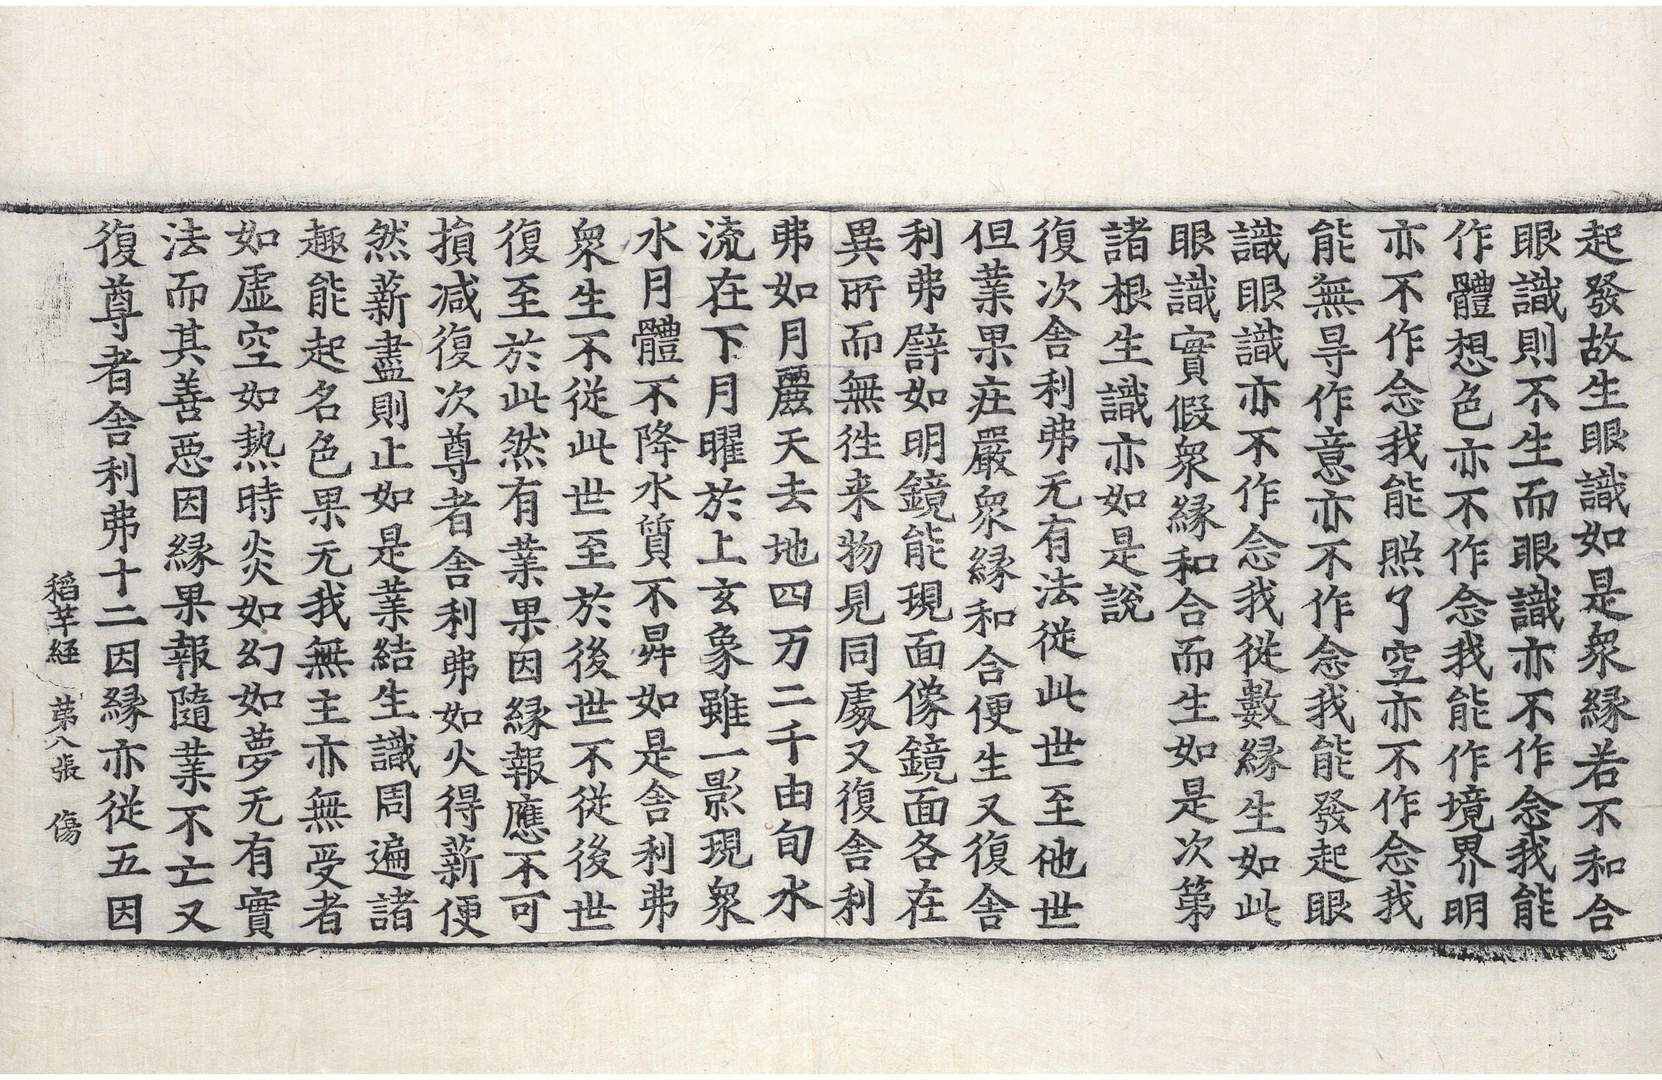 起發故生眼識如是衆緣若不和合
眼識則不生而眼識亦不作念我能
作體想色亦不作念我能作境界明
亦不作念我能照了空亦不作念我
能無㝵作意亦不作念我能發起眼
識眼識亦不作念我從數緣生如此
眼識實假衆緣和合而生如是次第
諸根生識亦如是說
復次舍利弗无有法從此世至他世
但業果庄嚴衆緣和合便生又復舍
利弗譬如明鏡能現面像鏡面各在
異所而無徃来物見同處又復舍利
弗如月麗天去地四万二千由旬水
流在下月曜於上玄象雖一影現衆
水月體不降水質不昇如是舍利弗
衆生不從此世至於後世不從後世
復至於此然有業果因緣報應不可
損减復次尊者舍利弗如火得薪便
然薪盡則止如是業結生識周遍諸
趣能起名色果无我無主亦無受者
如虛空如熱時炎如幻如夢无有實
法而其善惡因緣果報隨業不亡又
復尊者舍利弗十二因緣亦從五因
稻芉經 第八張 傷